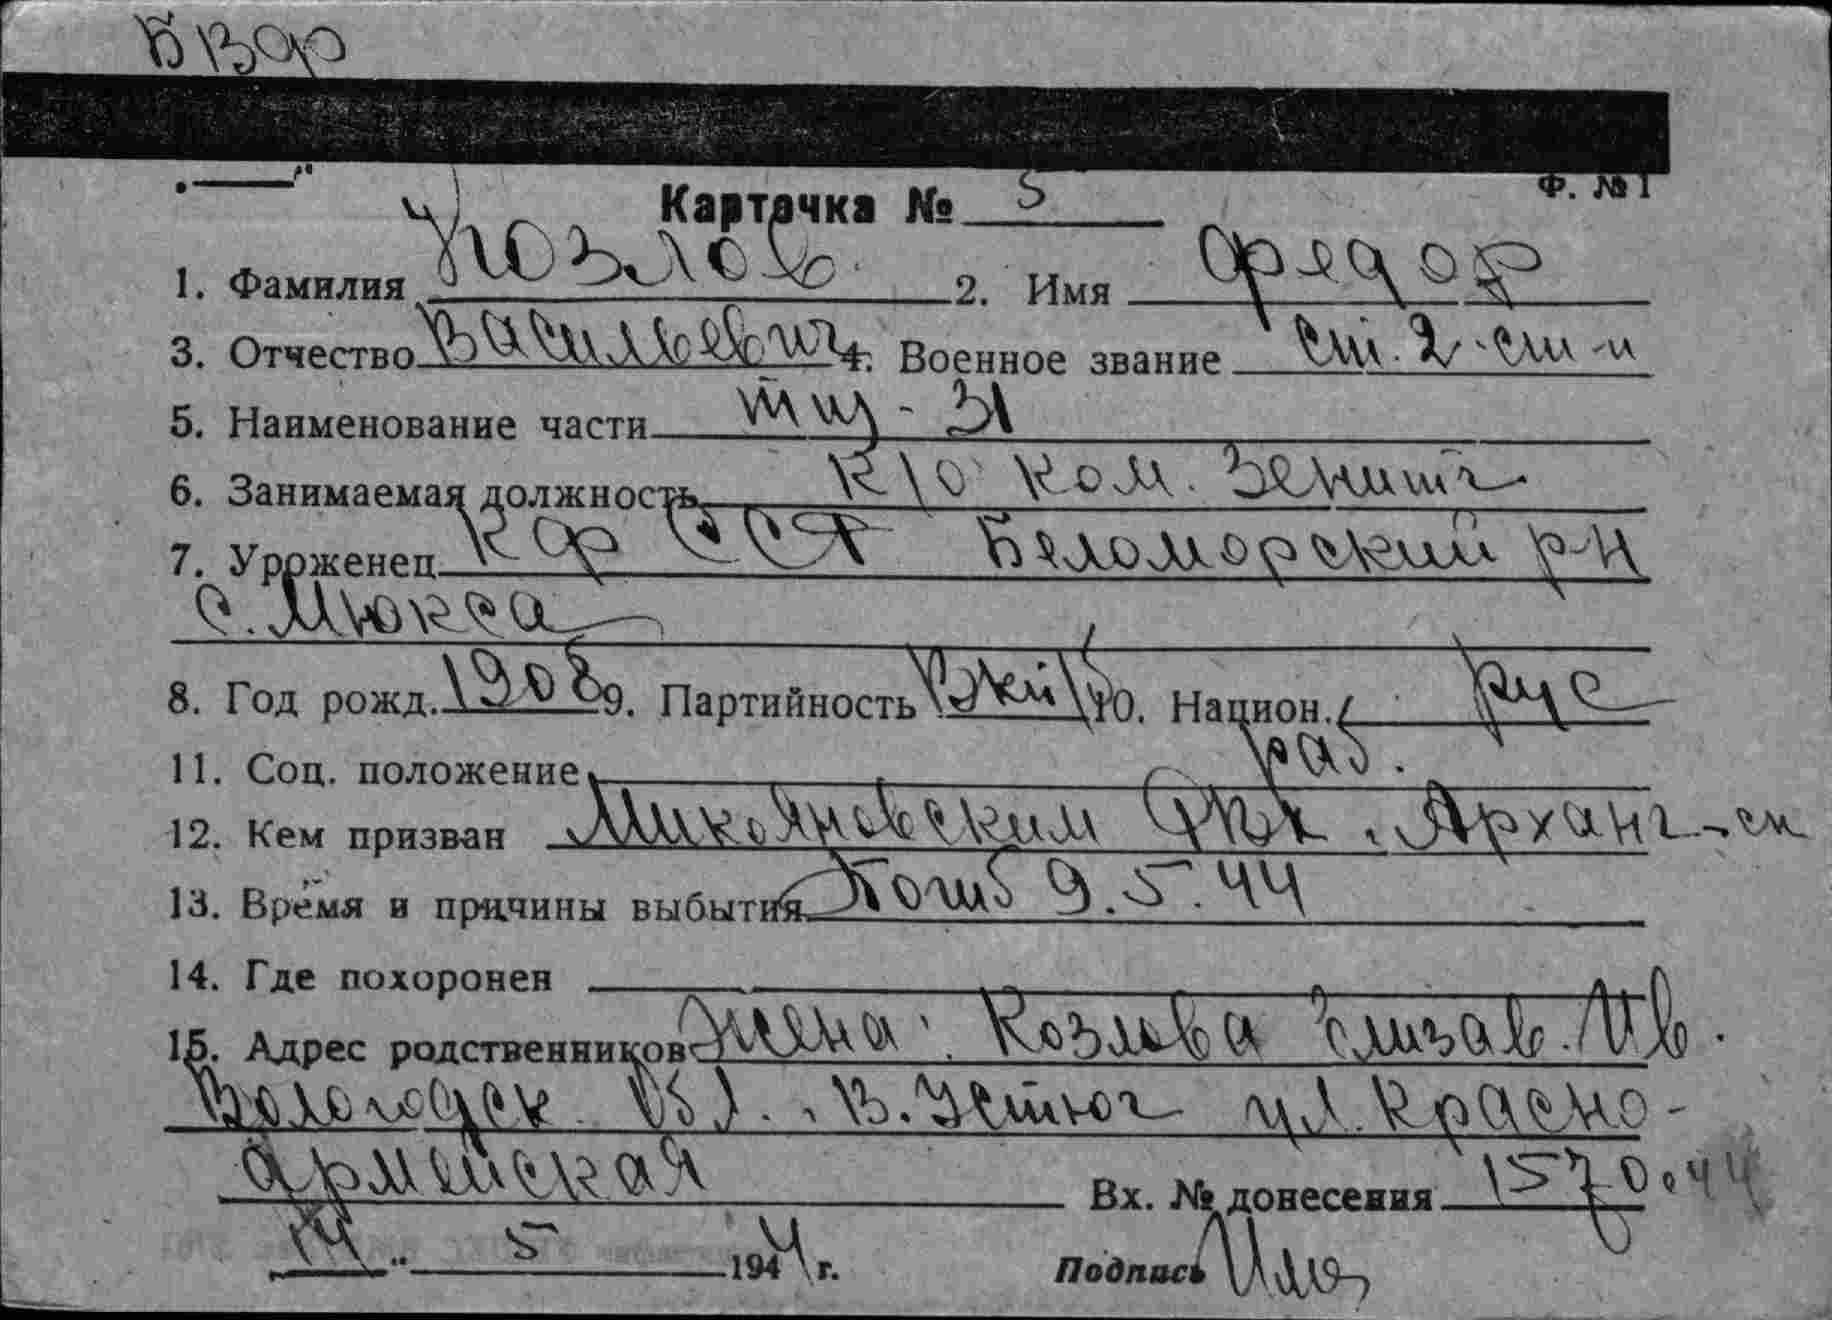 БВФ
Ф. № 1
Карточка № 5
1. Фамилия Козлов 2. Имя Федор
3. Отчество Васильевич 4. Военное звание ст. 2-ст-и
5. Наименование части тщ-31
6. Занимаемая должность к/о ком. Зенитч.
7. Уроженец КФССР Беломорский р-н
с. Нюкса
8. Год рожд. 1908 9. Партийность ВКП/б 10. Национ. рус
11. Соц. положение раб.
12. Кем призван Микояновским РВК, Арханг-ск
13. Время и причины выбытия Погиб 9.5.44
14. Где похоронен
15. Адрес родственников Жена: Козлова Елизав. Ив.
Вологодск. обл., В.Устюг ул. Красно-
армейская
Вх. № донесения 1570.44
14 " 5 1944 г. Подпись